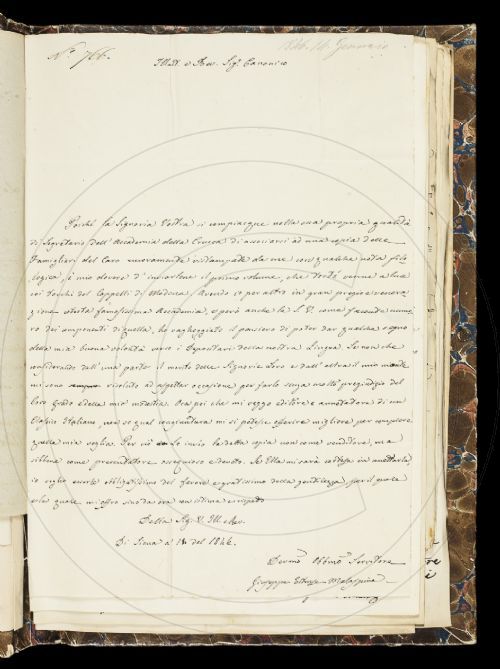 N.º 766.
1846. 16. Gennaio
Illm. e Rev. Sig.r Canonico
Poichè la Signoria Vostra si compiacque nella sua propria qualità
di Segretario dell'Accademia della Crusca di associarsi ad una copia delle
Famigliari del Caro nuovamente ristampate da me con qualche nota filo
logica, è mio dovere d' inviarlene il primo volume, che tardi venne a luce
coi torchi del Cappelli di Modena. Avendo io per altro in gran pregio e venera
zione cotesta famosissima Accademia, e però anche la S. V. come facendo nume
ro dei componenti di quella, ho vagheggiato il pensiero di poter dar qualche segno
della mia buona volontà verso i Depositari della nostra Lingua. Se non che
considerando dall'una parte il merito delle Signorie Loro e dall'altra il mio niente
mi sono risoluto ad aspettar occasione per farlo senza molto pregiudizio del
loro grado e della mia modestia. Ora poi che mi veggo editore e annotatore di un
Classico Italiano non so qual congiuntura mi si potesse offerire migliore per compiere
quella mia voglia. Per ciò Le invio la detta copia non come venditore, ma
sibbene come presentatore ossequioso e devoto. Se Ella mi sarà cortese in accettarla,
io voglio esserle obbligatissimo del favore e gratissimo della gentilezza, per il quale
e la quale mi offro sin da ora con istima e rispetto
Della Sig. V. Ill. e Rev.
Di Siena a del 1846.
Devmo Obbmo Servitore
Giuseppe Malaspina